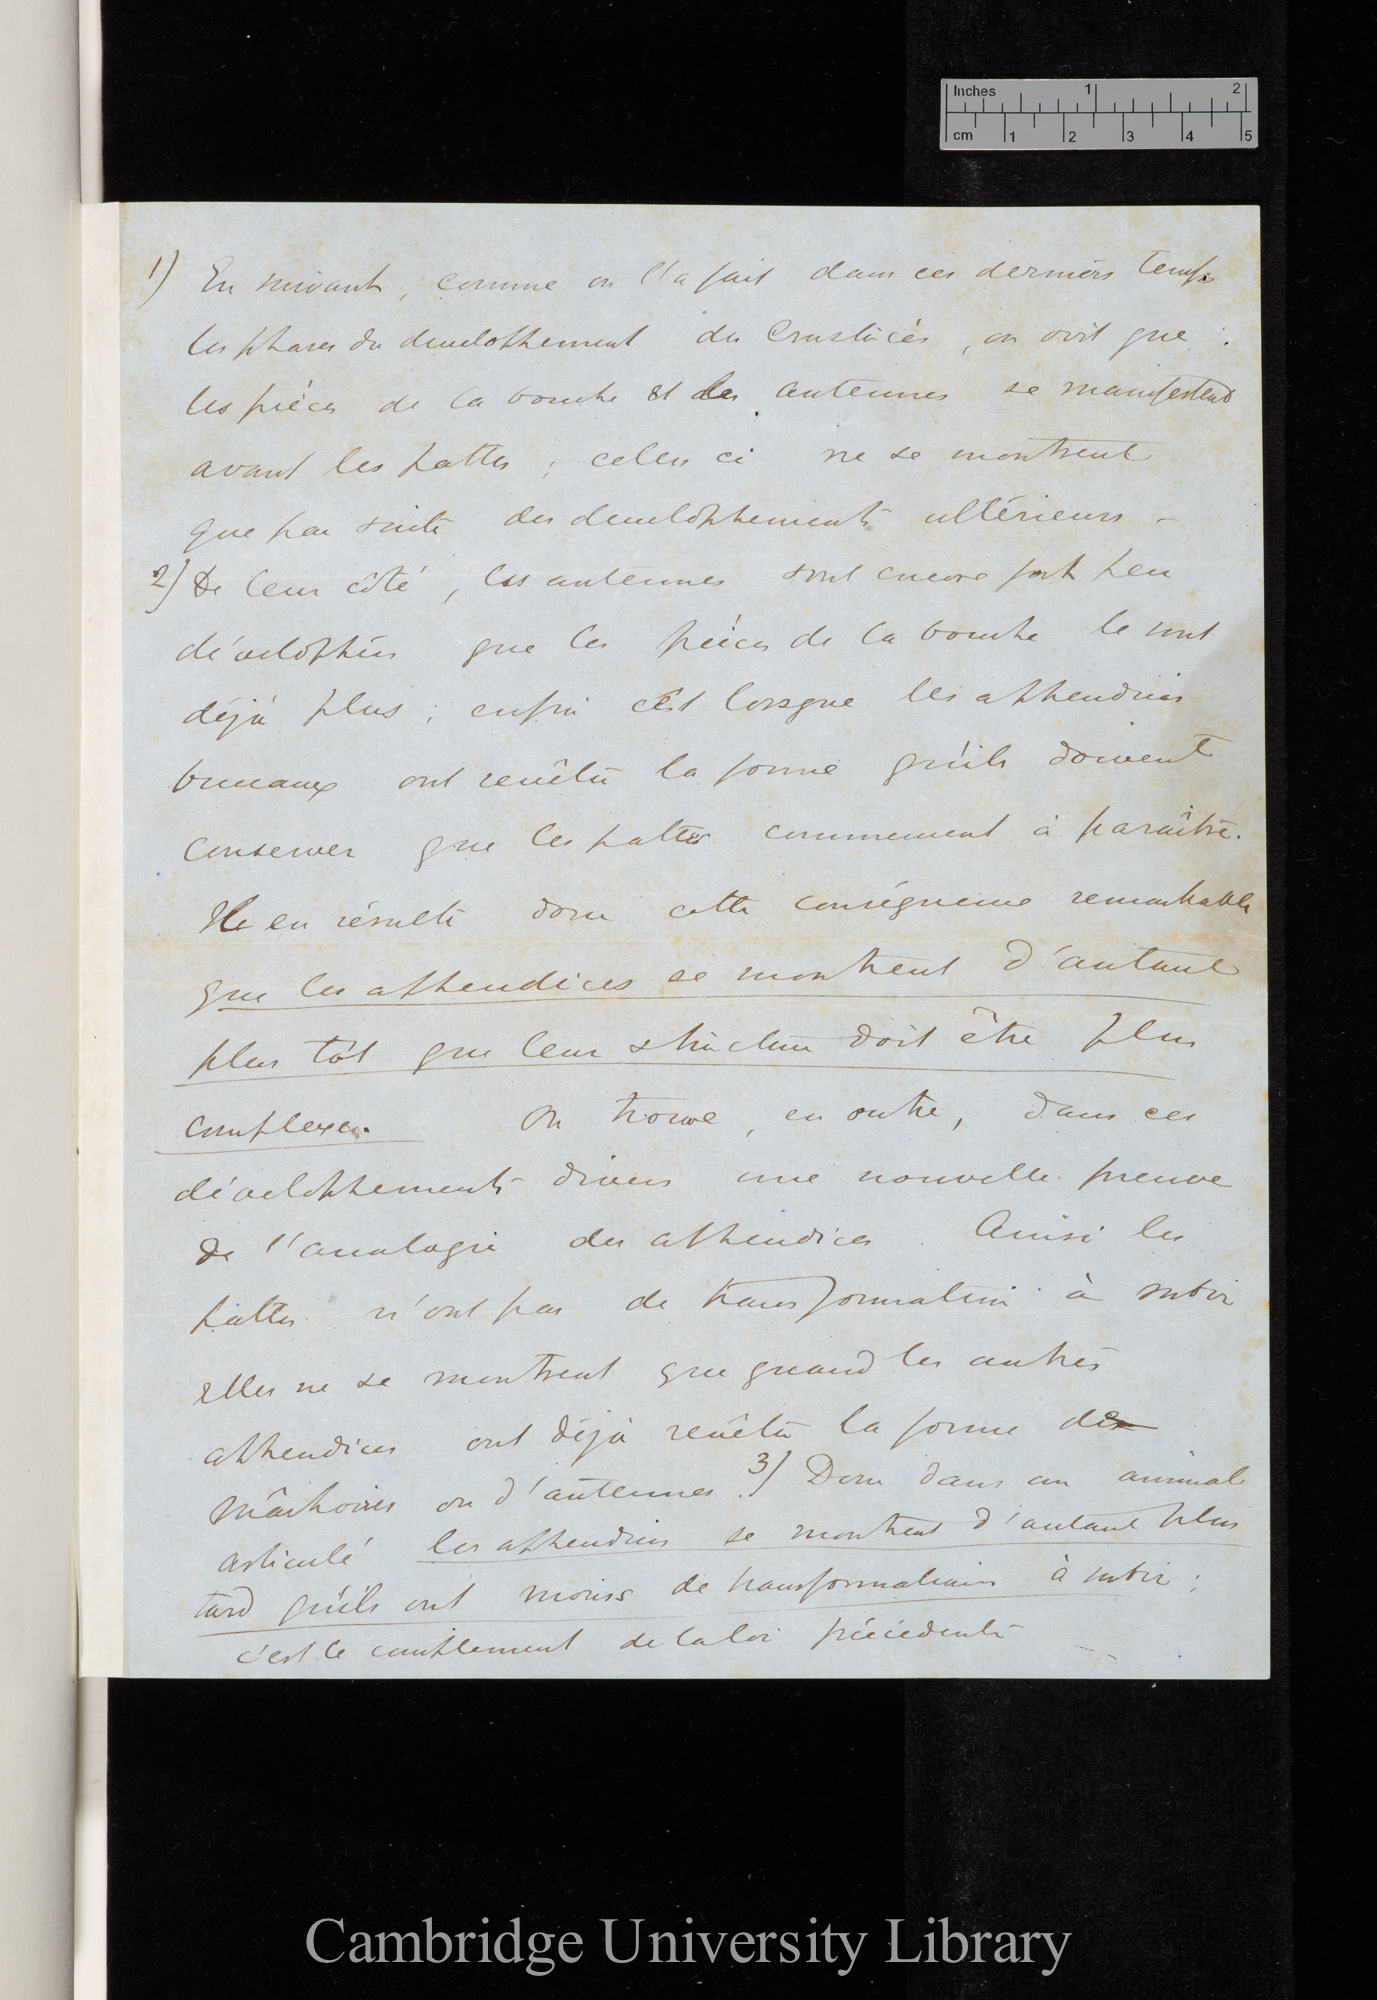 Inches 1 2
cm 1 2 3 4 5
1) En suivant, comme on l'a fait dans ces derniers temps
les phases du developpement des Crustacés, on voit que
les pièces de la bouche et les antennes se manifestent
avant les pattes ; celles ci ne se montrent
que par suite des developpements ultérieurs -
2) De leur côté, les antennes sont encore fort peu
développées que les pièces de la bouche le sont
déjà plus ; enfin c'est lorsque les appendices
buccaux ont revêtu la forme qu'ils doivent
conserver que les pattes commencent à paraître.
Il en résulte donc cette conséquence remarkable
que les appendices se montrent d'autant
plus tôt que leur structure doit être plus
complexe. On trouve, en outre, dans ces
développements divers une nouvelle preuve
de l'analogie des appendices. Ainsi les
pattes n'ont pas de transformation à subir
elles ne se montrent que quand les autres
appendices ont déjà revêtu la forme de
mâchoires ou d'antennes. 3) Donc dans un animal
articulé les appendices se montrent d'autant plus
tard qu'ils ont moins de transformations à subir ;
c'est le complement de la loi précédente
Cambridge University Library